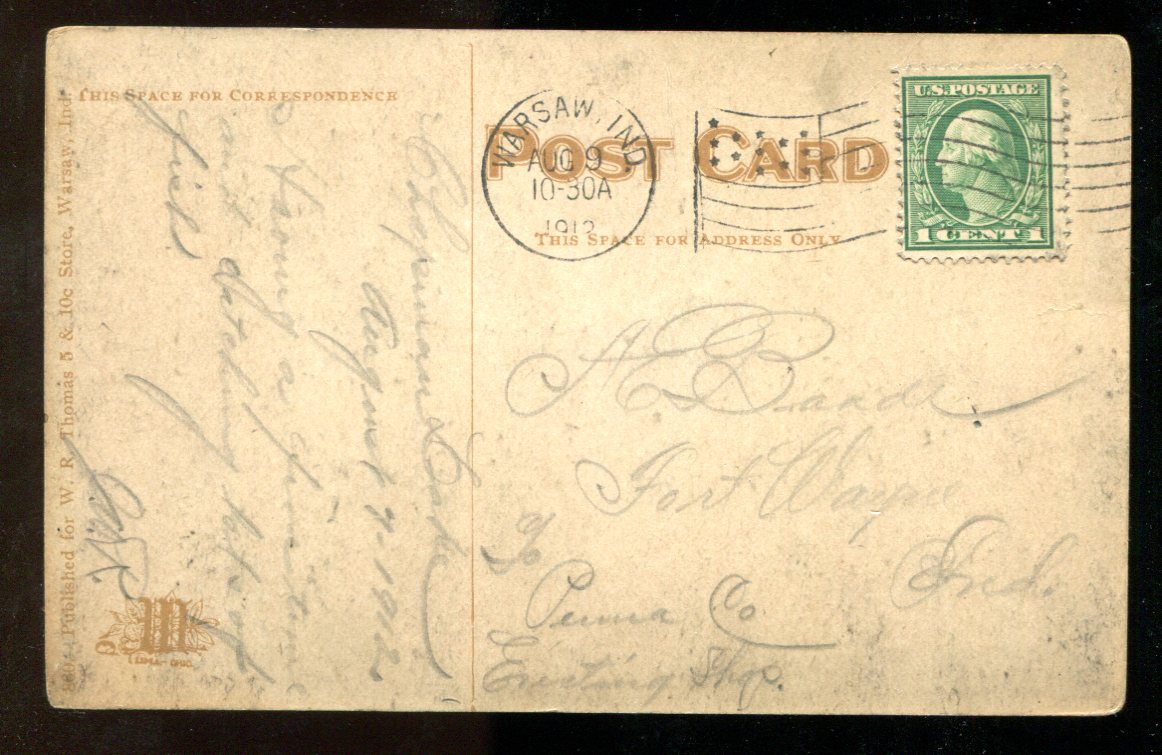 THIS SPACE FOR CORRESPONDENCE
Chapman Lake
August 9-1912
Having a fine time
and catching lots of
fish
Published for W. R. Thomas 5 & 10c Store, Warsaw, Ind.
LIMA-OHIO.
POST CARD
THIS SPACE FOR ADDRESS ONLY
WARSAW, IND.
AUG 9
10-30A
1912
U.S. POSTAGE
1 CENT 1
A. E.
Fort Wayne
Ind.
Penna Co
Shop.